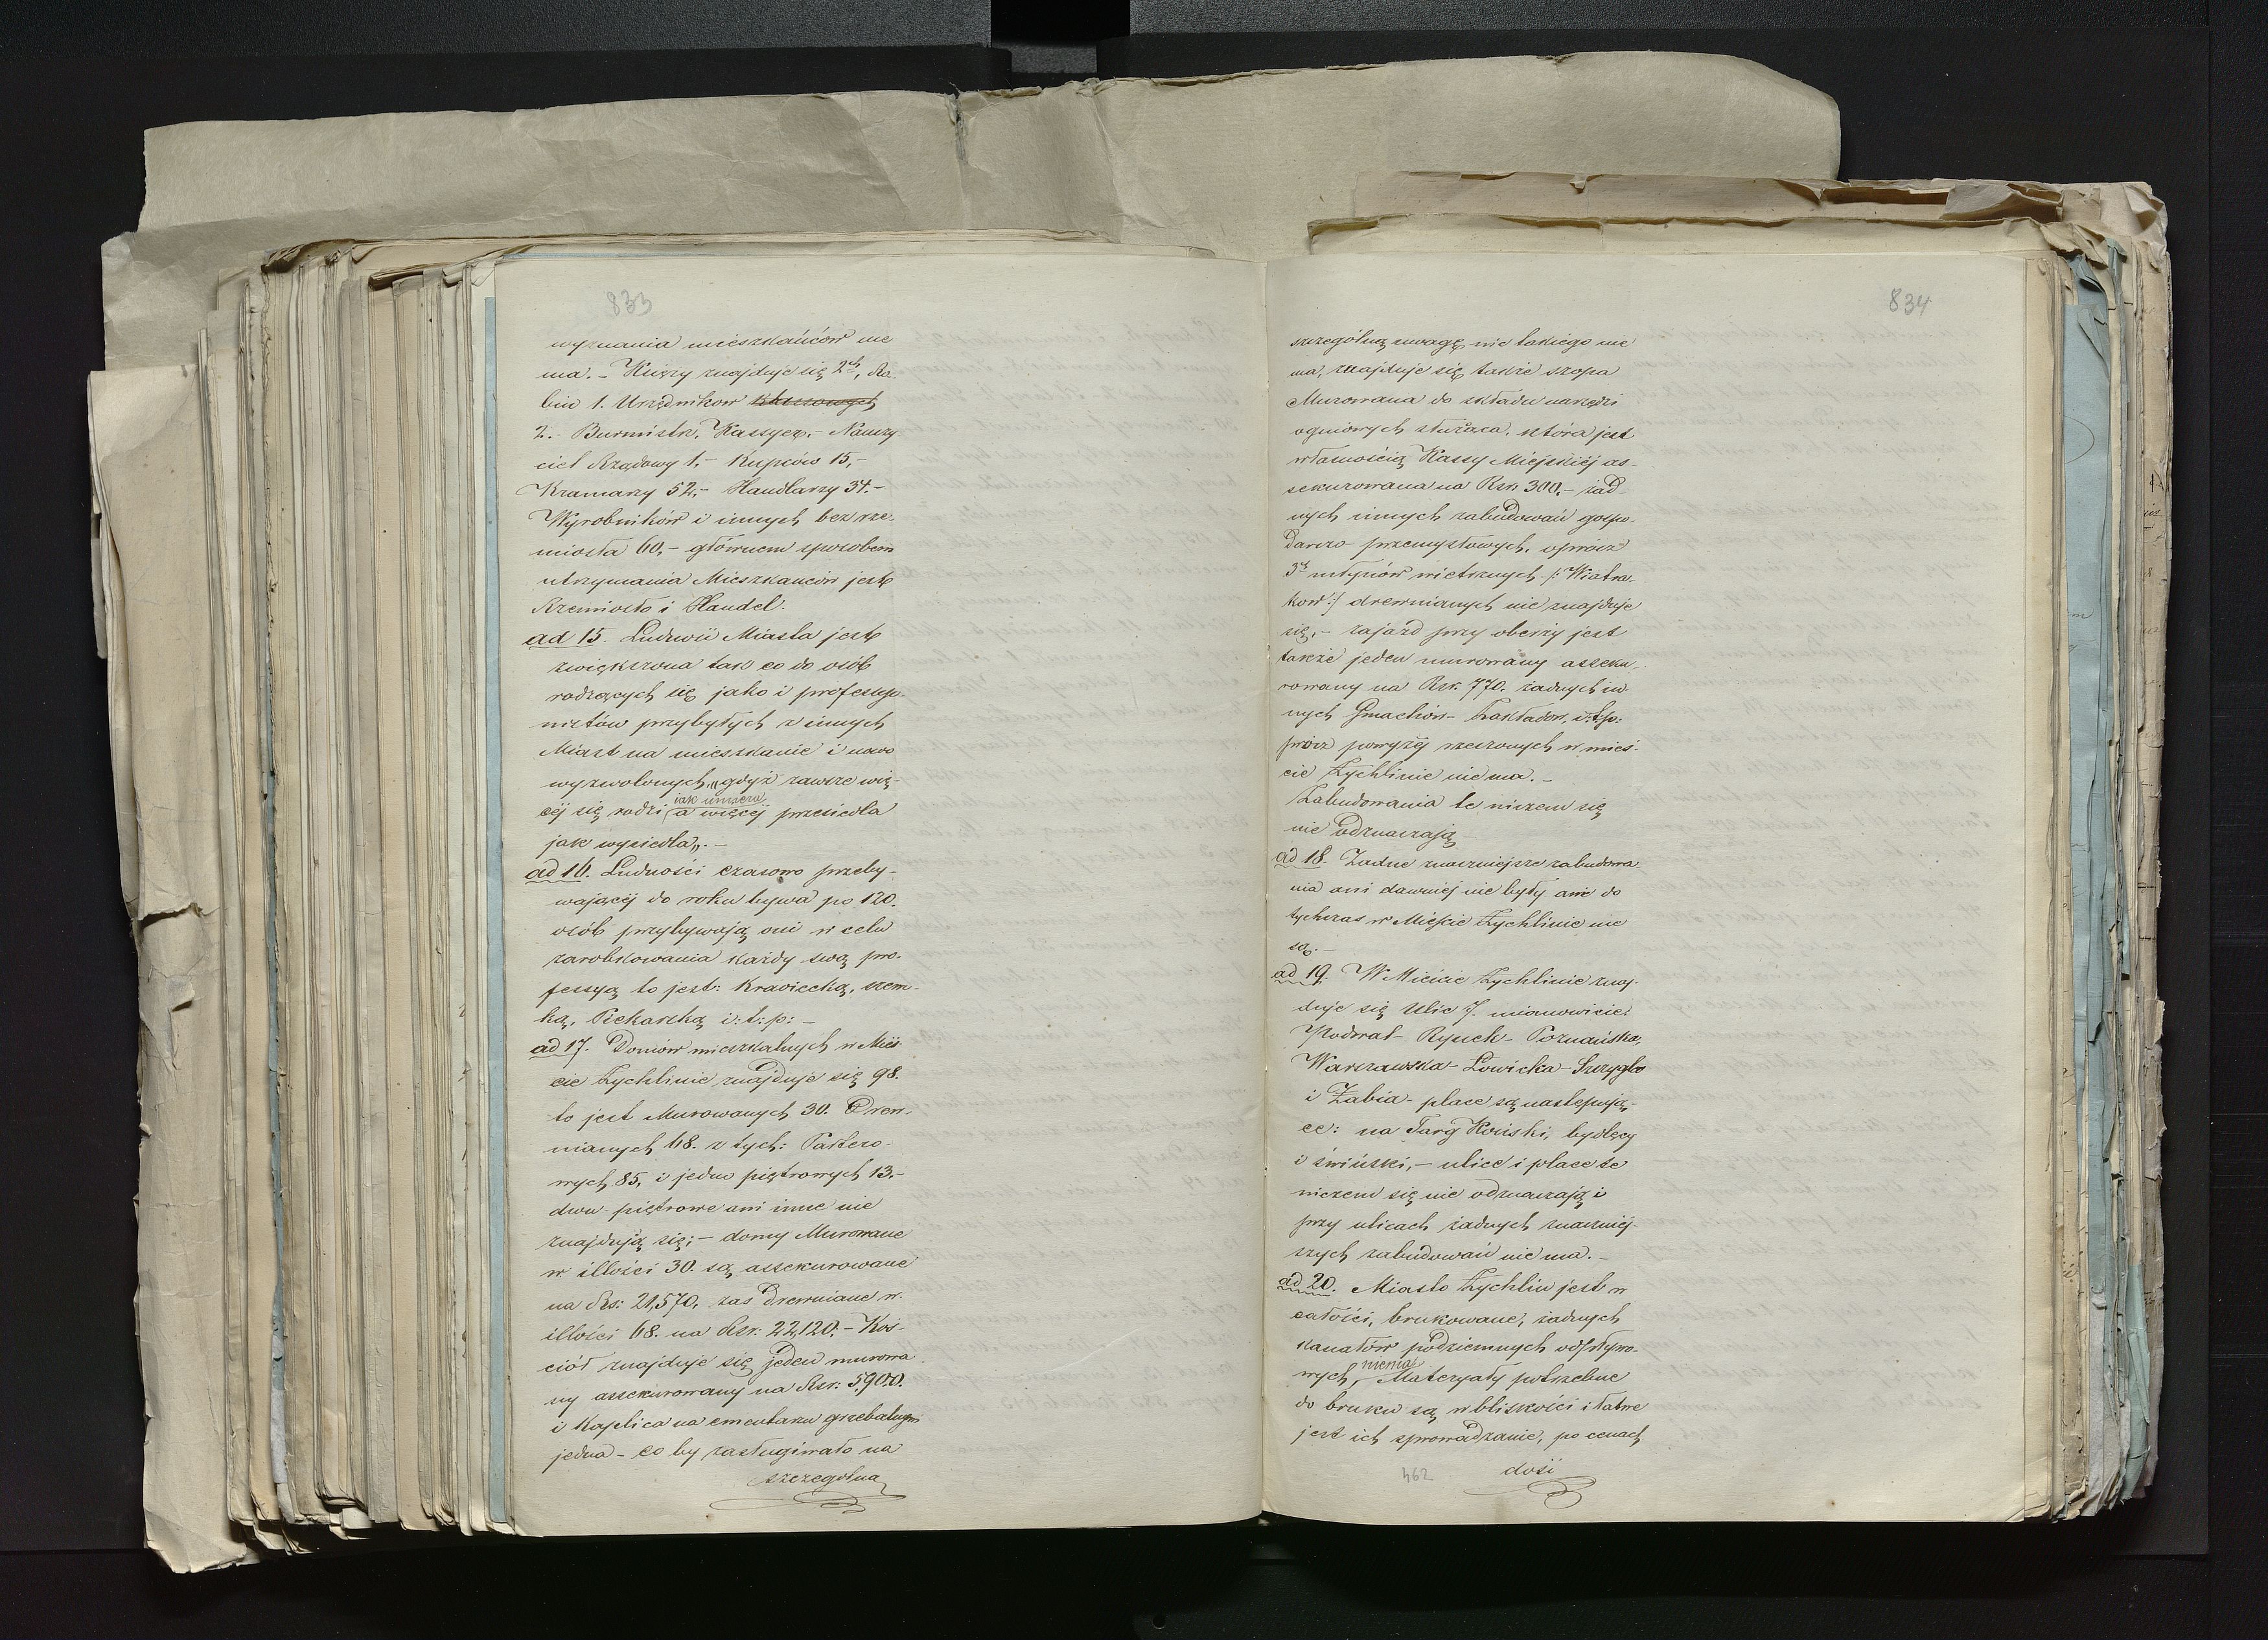 833
wyznania mieszkańców nie
ma. - Księży znajduje się 2ch, Ra-
bin 1. Urzędnikow
2. Burmistr, Kassyer, - Nauczy
ciel Rządowy 1, - Kupców 15, -
Kramarzy 52, - Handlarzy 34. -
Wyrobników i innych bez rze-
miosła 60, - głównem sposobem
utrzymania Mieszkańców jest
Rzemiosło i Handel.
ad 15. Ludność Miasta jest
zwiększona tak co do osób
rodzących się jako i professyo-
nistów przybyłych z innych
Miast na mieszkanie i nowo
wyzwolonych, "gdyż zawsze wię-
jak umiera
céj się rodzi, a więcéj przesiedla
jak wysiedla". -
ad 16. Ludności czasowo przeby-
wającéj do roku bywa po 120.
osób przybywają oni w celu
zarobkowania każdy swą pro-
fessyą to jest: Krawiecką, szew-
ką, Piekarską i:t:p: -
ad 17. Domów mieszkalnych w Mieś-
cie Żychlinie znajduje się 98.
to jest Murowanych 30. Drew-
nianych 68. z tych: Partero-
wych 85, i jedno piętrowych 13. -
dwu-piętrowe ani inne nie
znajdują się; - domy Murowane
w illości 30. są assekurowane
na Rs: 21,570, zas Drewniane w
illości 68. na Rsr: 22,120. - Koś-
ciół znajduje się jeden murowa
ny assekurowany na Rsr: 5,900.
i Kaplica na cmentarzu grzebalnym
jedna - co by zasługiwało na
szczegolną
834
szczególną uwagę nic takiego nie
ma, znajduje się także szopa
Murowana do składu narzędzi
ogniowych służąca, która jest
własnością Kassy Miejskiéj as-
sekurowana na Rsr. 300, - żad-
nych innych zabudowań gospo-
darczo-przemysłowych, oprócz
3ch młynów wietrznych /: Wiatra-
kow :/ drewnianych nie znajduje
się, - zajazd przy oberży jest
także jeden murowany asseku-
rowany na Rsr. 770. żadnych in-
nych Gmachów - Zakładow, i:t:p:
prócz powyżéj rzeczonych w mieś-
cie Żychlinie nie ma. -
Zabudowania te niczem się
nie odznaczają
ad 18. Żadne znaczniejsze zabudowa-
nia ani dawniéj nie były ani do
tychczas w Mieście Żychlinie nie
są. -
ad 19. W Mieście Żychlinie znaj-
duje się Ulic 7. mianowicie:
Podwal - Rynek - Poznańska,
Warszawska - Łowicka - Szczygla
i Żabia - place są następują-
ce: na Targ Koński, bydlęcy
i świński, - ulice i place te
niczem się nie odznaczają i
przy ulicach żadnych znaczniéj-
szych zabudowań nie ma. -
ad 20. Miasto Żychlin jest w
całości, brukowane, żadnych
kanałów podziemnych odpływo-
niema
wych, - Materyały potrzebne
do bruku są w bliskości i łatwe
jest ich sprowadzanie, po cenach
dość
462